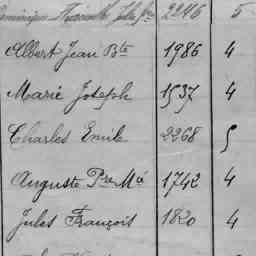 Dominique Hyacinthe Jules 2246 5
Albert Jean Bte 1986 4
Marie Joseph 1537 4
Charles Emile 2268 5
Auguste Pre Mie 1742 4
Jules François 1820 4